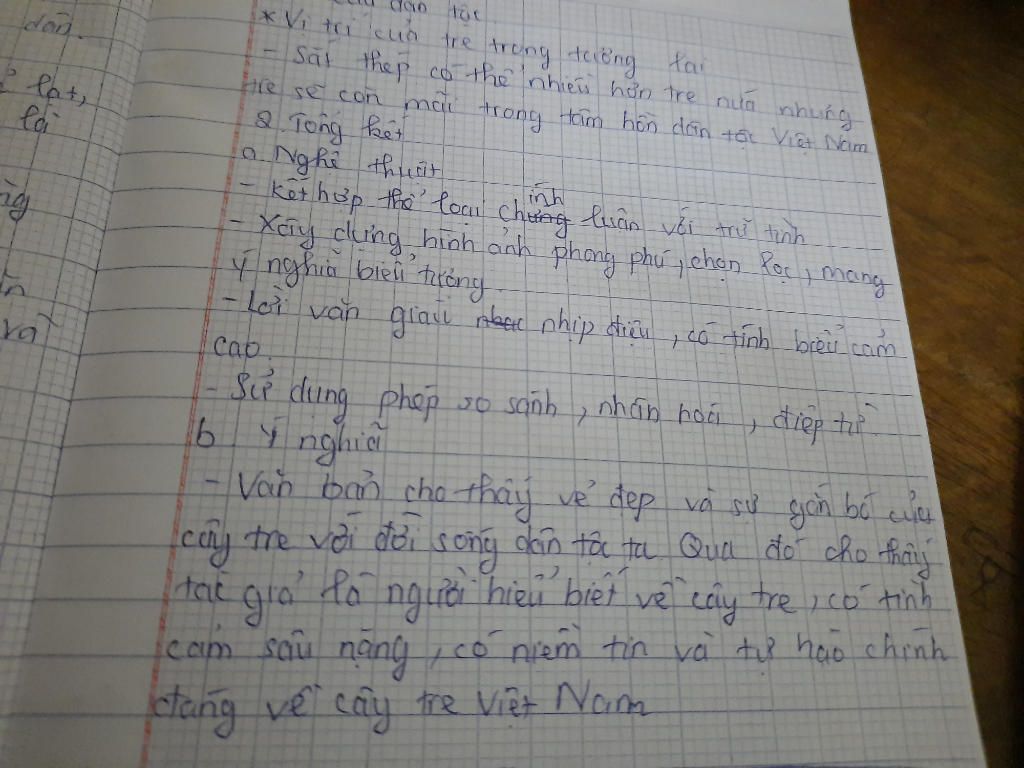 dân tộc
* Vị trí của tre trong tương lai
- Sắt thép có thể nhiều hơn tre nứa nhưng
tre sẽ còn mãi trong tâm hồn dân tộc Việt Nam
2. Tổng kết
a Nghệ thuật
- Kết hợp thể loại chính luận với trữ tình
- Xây dựng hình ảnh phong phú, chọn lọc, mang
ý nghĩa biểu tượng
- Lời văn giàu nhịp điệu, có tính biểu cảm
cao.
- Sử dụng phép so sánh, nhân hoá, điệp từ
b Ý nghĩa
- Văn bản cho thấy vẻ đẹp và sự gắn bó của
cây tre với đời sống dân tộc ta Qua đó cho thấy
tác giả là người hiểu biết về cây tre, có tình
cảm sâu nặng, có niềm tin và tự hào chính
đáng về cây tre Việt Nam